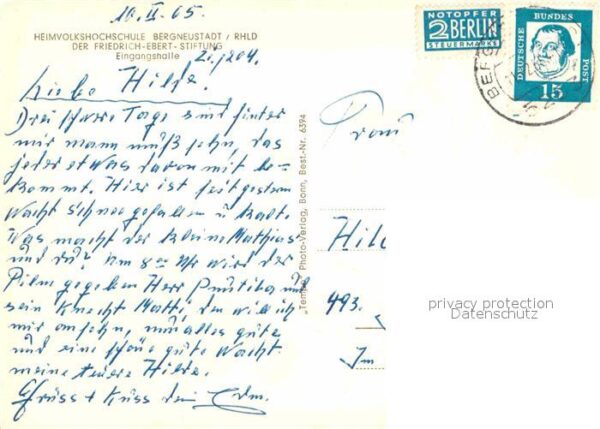 10.II.65.
HEIMVOLKSHOCHSCHULE BERGNEUSTADT / RHLD
DER FRIEDRICH-EBERT-STIFTUNG
Eingangshalle
Zi. 204.
Liebe Hilde.
Drei schwere Tage sind hinter
mir mann muß sehn, das
jeder etwas davon mit be-
kommt. Hier ist seit gestern
Nacht Schnee gefallen u kalt.
Was macht der kleine Mathias
und du? Um 8 Uhr wird der
Film gegeben Herr Puntila und
sein Knecht Matti, den will ich
mir ansehn, nun alles gute
und eine schöne gute Nacht
meine teuere Hilde.
Gruss + Kuss dein
"Tempo" Photo-Verlag, Bonn, Best.-Nr. 6394
NOTOPFER
2 BERLIN
STEUERMARKE
DEUTSCHE
BUNDES
POST
15
Frau
Hild
493.
Im
privacy protection
Datenschutz